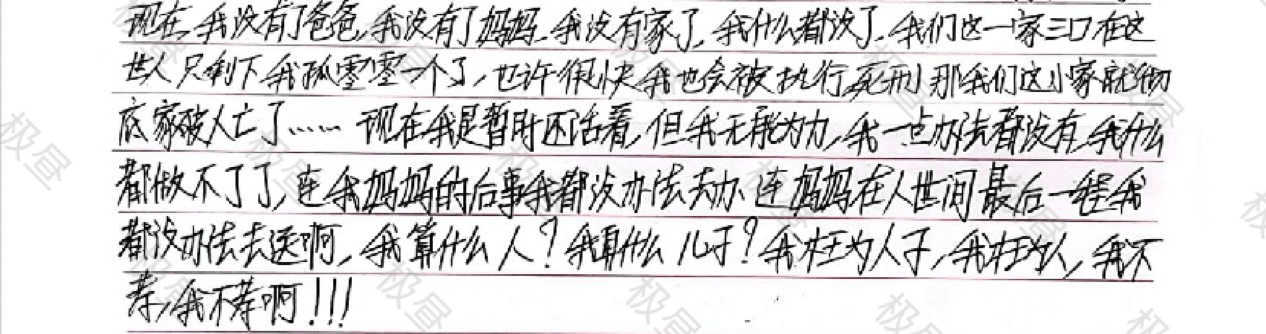 现在,我没有了爸爸,我没有了妈妈,我没有家了,我什么都没了.我们这一家三口在这
世人只剩下我孤零零一个了,也许很快我也会被执行死刑 那我们这小家就彻
底家破人亡了…… 现在我是暂时还活着,但我无能为力,我一点办法都没有,我什么
都做不了了,连我妈妈的后事我都没办法去办 连妈妈在人世间最后一程我
都没办法去送啊,我算什么人?我算什么儿子?我枉为人子,我枉为人,我不
孝,我不孝啊!!!
极昼
极昼
极昼
极昼
极昼
极昼
极昼